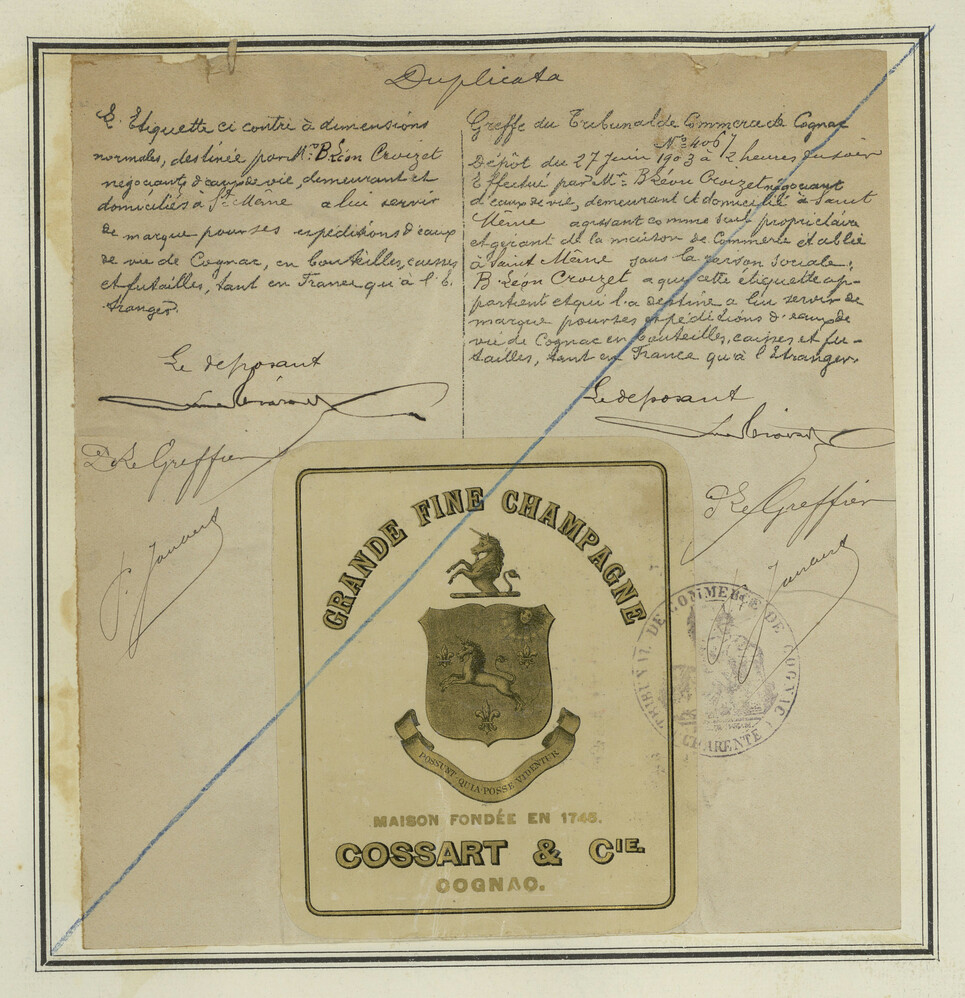 Duplicata
L'Etiquette ci contre à dimensions
normales, destinée par Mr. B. Léon Croizet
négociant, d'eaux de vie, demeurant et
domiciliés à St. Même a lui servir
de marque pour ses expéditions d'eaux
de vie de Cognac, en bouteilles, caisses
et futailles, tant en France qu'à l'E-
tranger.
Le deposant
Le Greffier
Greffe du Tribunal de Commerce de Cognac
No. 4067
Dépôt du 27 Juin 1903 à 2 heures du soir
Effectué par Mr. B Léon Croizet négociant
d'eaux de vie, demeurant et domicilié à Saint
Même agissant comme seul propriétaire
et gérant de la maison de Commerce établie
à Saint Même sous la raison sociale:
B. Léon Croizet a qui cette étiquette ap-
partient et qui l'a destine a lui servir de
marque pour ses expéditions d'eaux de
vie de Cognac en bouteilles, caisses et fu-
tailles, tant en France qu'à l'Etranger.
Le deposant
Le Greffier
GRANDE FINE CHAMPAGNE
POSSUNT QUIA POSSE VIDENTUR
MAISON FONDÉE EN 1745.
COSSART & CIE.
COGNAC.
TRIBUNAL DE COMMERCE DE COGNAC
(CHARENTE)